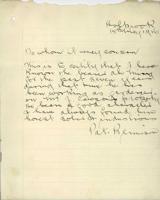 Holbrook
To whom it may concern
This is to certify that I have
known the bearer
for the past seven years
during that time he has
been working as
on Mr property
he bears a good character
I have always found him
honest sober & industrious
Pat.